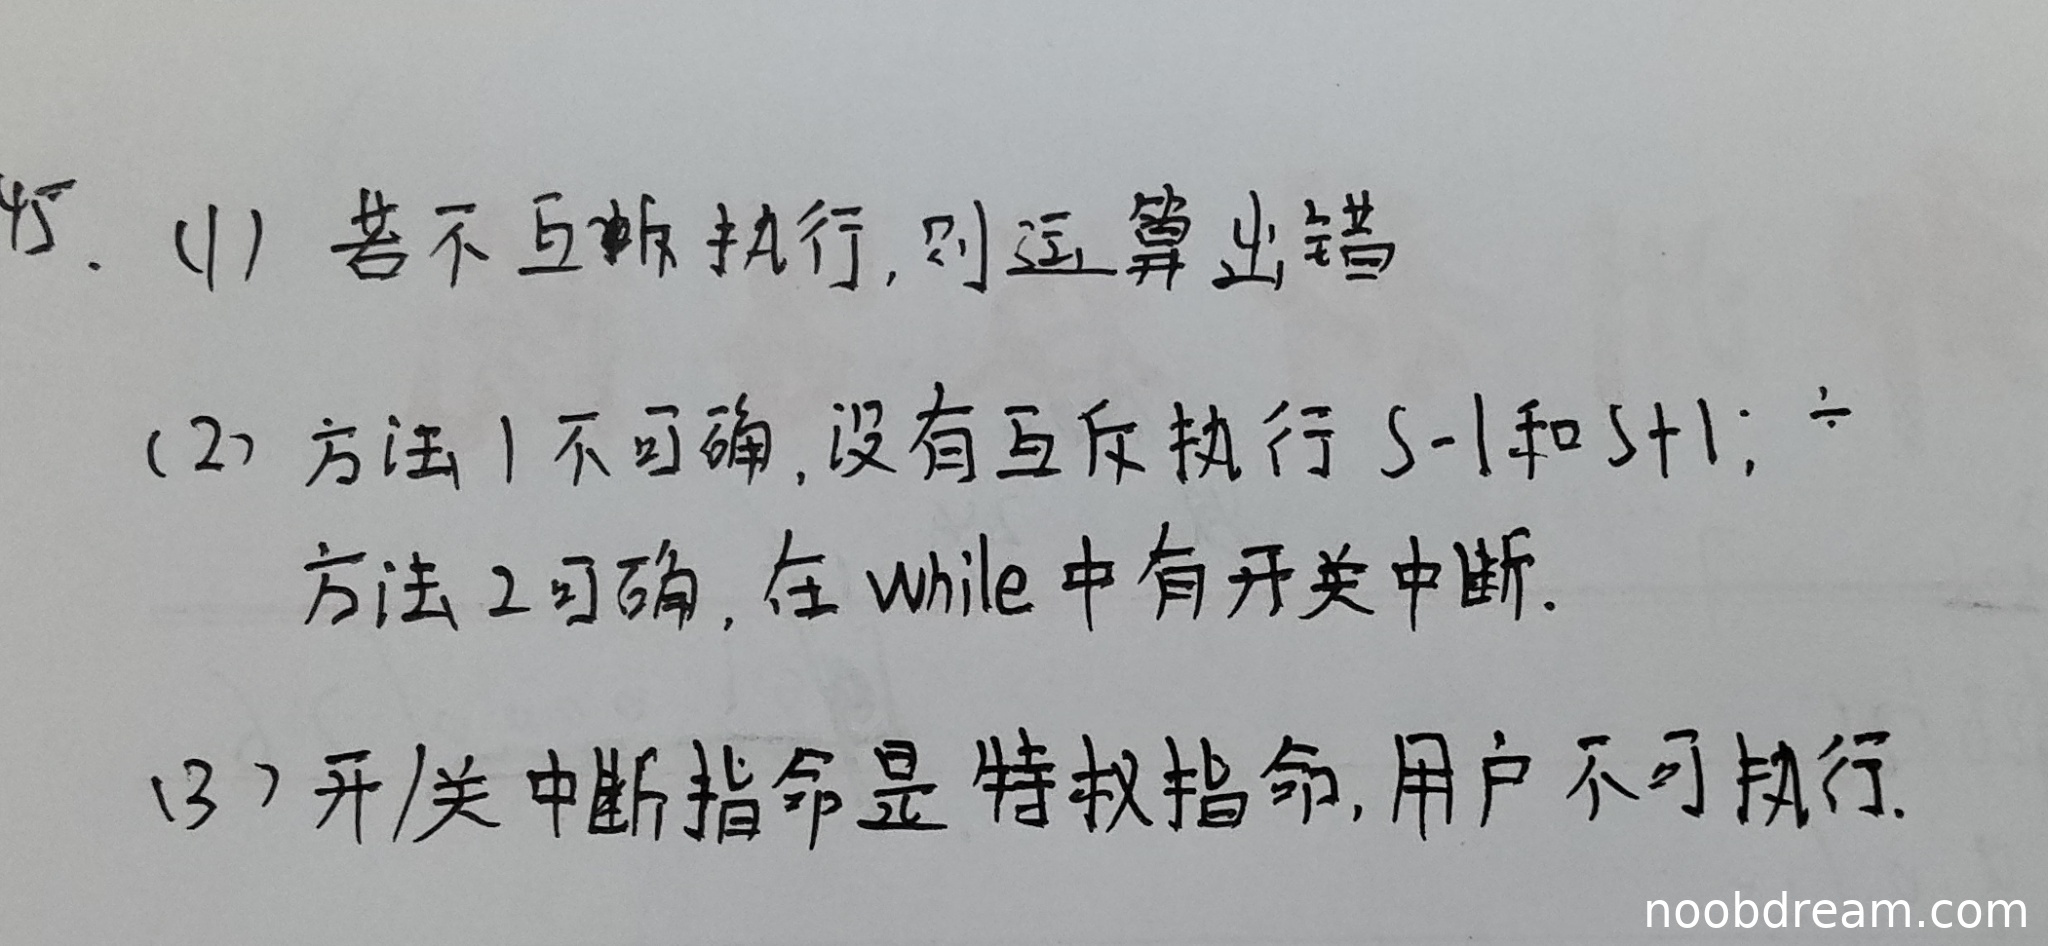 45. (1) 若不互斥执行,则运算出错
(2) 方法1不可确,没有互斥执行 S-1和S+1; ÷
方法2可确,在while中有开关中断.
(3) 开/关中断指命是特权指命,用户不可执行.
noobdream.com